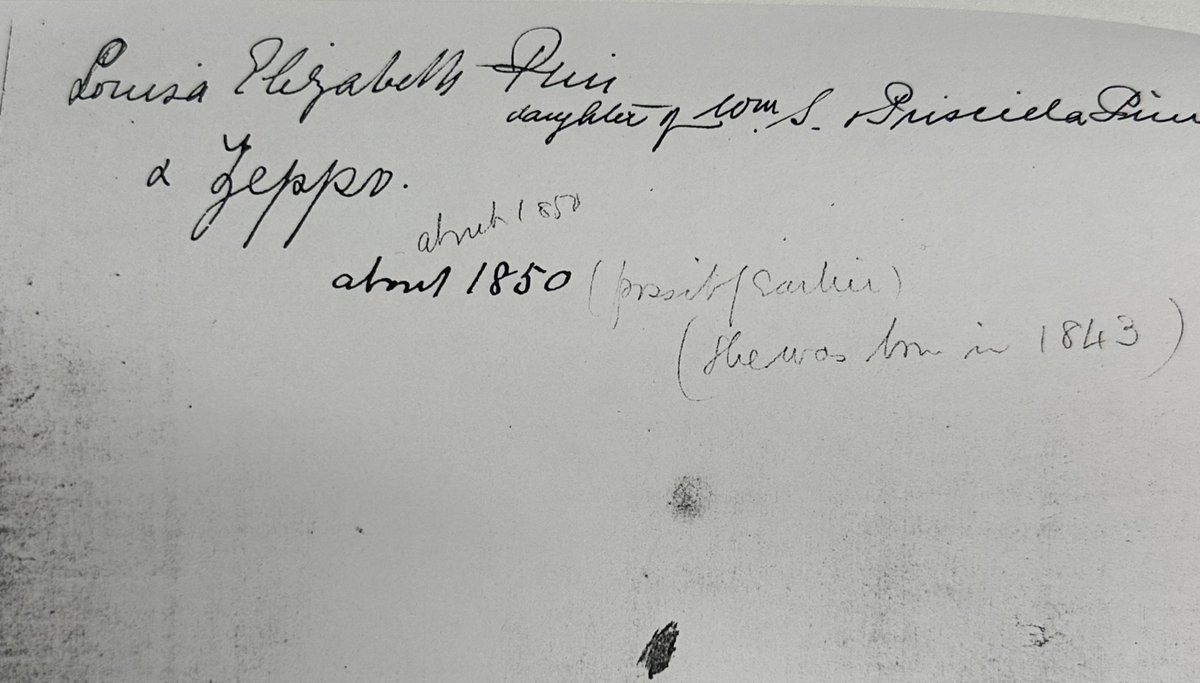 Louisa Elizabeth Pim
daughter of Wm. S. Priscilla Pim
& Zeppo.
about 1850
about 1850 (possib/Earlier)
(She was born in 1843)